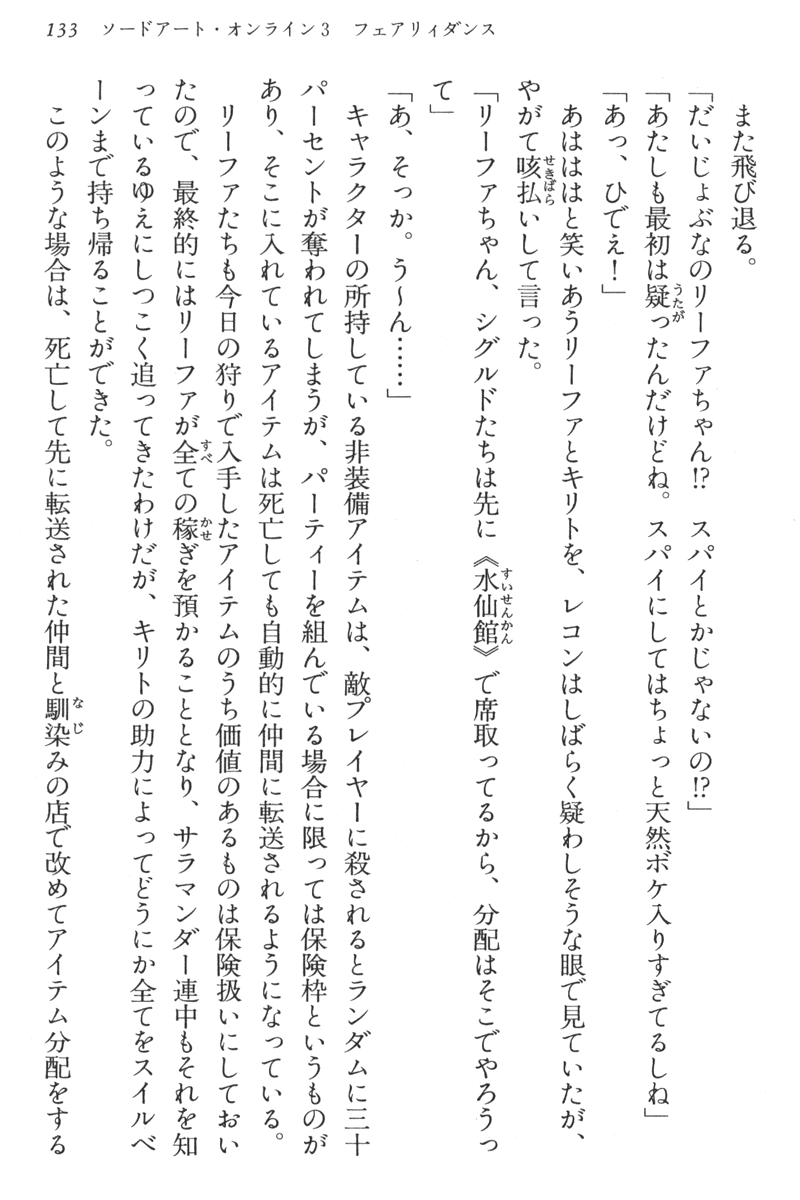 133 ソードアート・オンライン3　フェアリィダンス
また飛び退る。
「だいじょぶなのリーファちゃん!?　スパイとかじゃないの!?」
「あたしも最初は疑ったんだけどね。スパイにしてはちょっと天然ボケ入りすぎてるしね」
「あっ、ひでぇ！」
あははは と笑いあうリーファとキリトを、レコンはしばらく疑わしそうな眼で見ていたが、
やがて咳払いして言った。
「リーファちゃん、シグルドたちは先に《水仙館》で席取ってるから、分配はそこでやろうっ
て」
「あ、そっか。う〜ん……」
キャラクターの所持している非装備アイテムは、敵プレイヤーに殺されるとランダムに三十
パーセントが奪われてしまうが、パーティーを組んでいる場合に限っては保険枠というものが
あり、そこに入れているアイテムは死亡しても自動的に仲間に転送されるようになっている。
リーファたちも今日の狩りで入手したアイテムのうち価値のあるものは保険扱いにしておい
たので、最終的にはリーファが全ての稼ぎを預かることとなり、サラマンダー連中もそれを知
っているゆえにしつこく追ってきたわけだが、キリトの助力によってどうにか全てをスイルベ
ーンまで持ち帰ることができた。
このような場合は、死亡して先に転送された仲間と馴染みの店で改めてアイテム分配をする